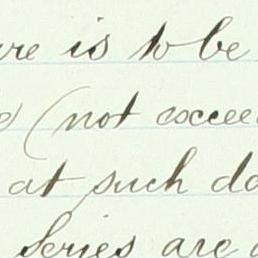 is to be
(not excee
at such da
Series are